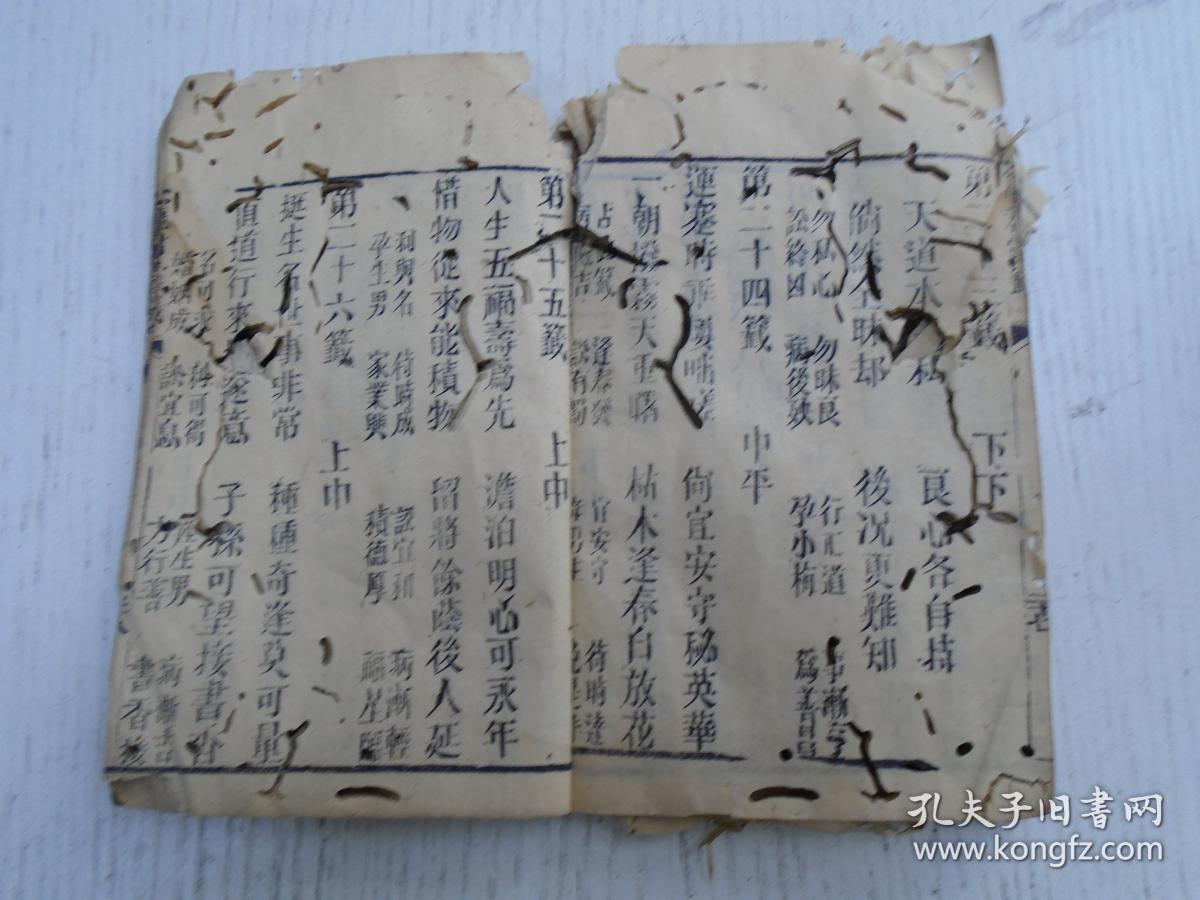 第二三籤 下下
天道本無私 良心各自持
倘然全昧却 後況更難知
勿私心 勿昧良 行正道
訟終凶 病後殃 孕小梅
第二十四籤 中平
運蹇時乖 尙宜安守秘英華
一朝撥霧天重曙 枯木逢春自放花
占此籤 逢春發 官安守 待時達
第二十五籤 上中
人生五福壽爲先 澹泊明心可永年
惜物從來能積物 留將餘蔭後人延
利與名 待時成 訟宜和 病漸輕
孕生男 家業興 積德厚 福星臨
第二十六籤 上中
挺生名世事非常 種種奇逢莫可量
直道行來遂意 子孫可望接書香
名可求 科可奪 產生男 病漸
婚姻成 訟宜息 力行善 書香接
孔夫子旧书网
www.kongfz.com